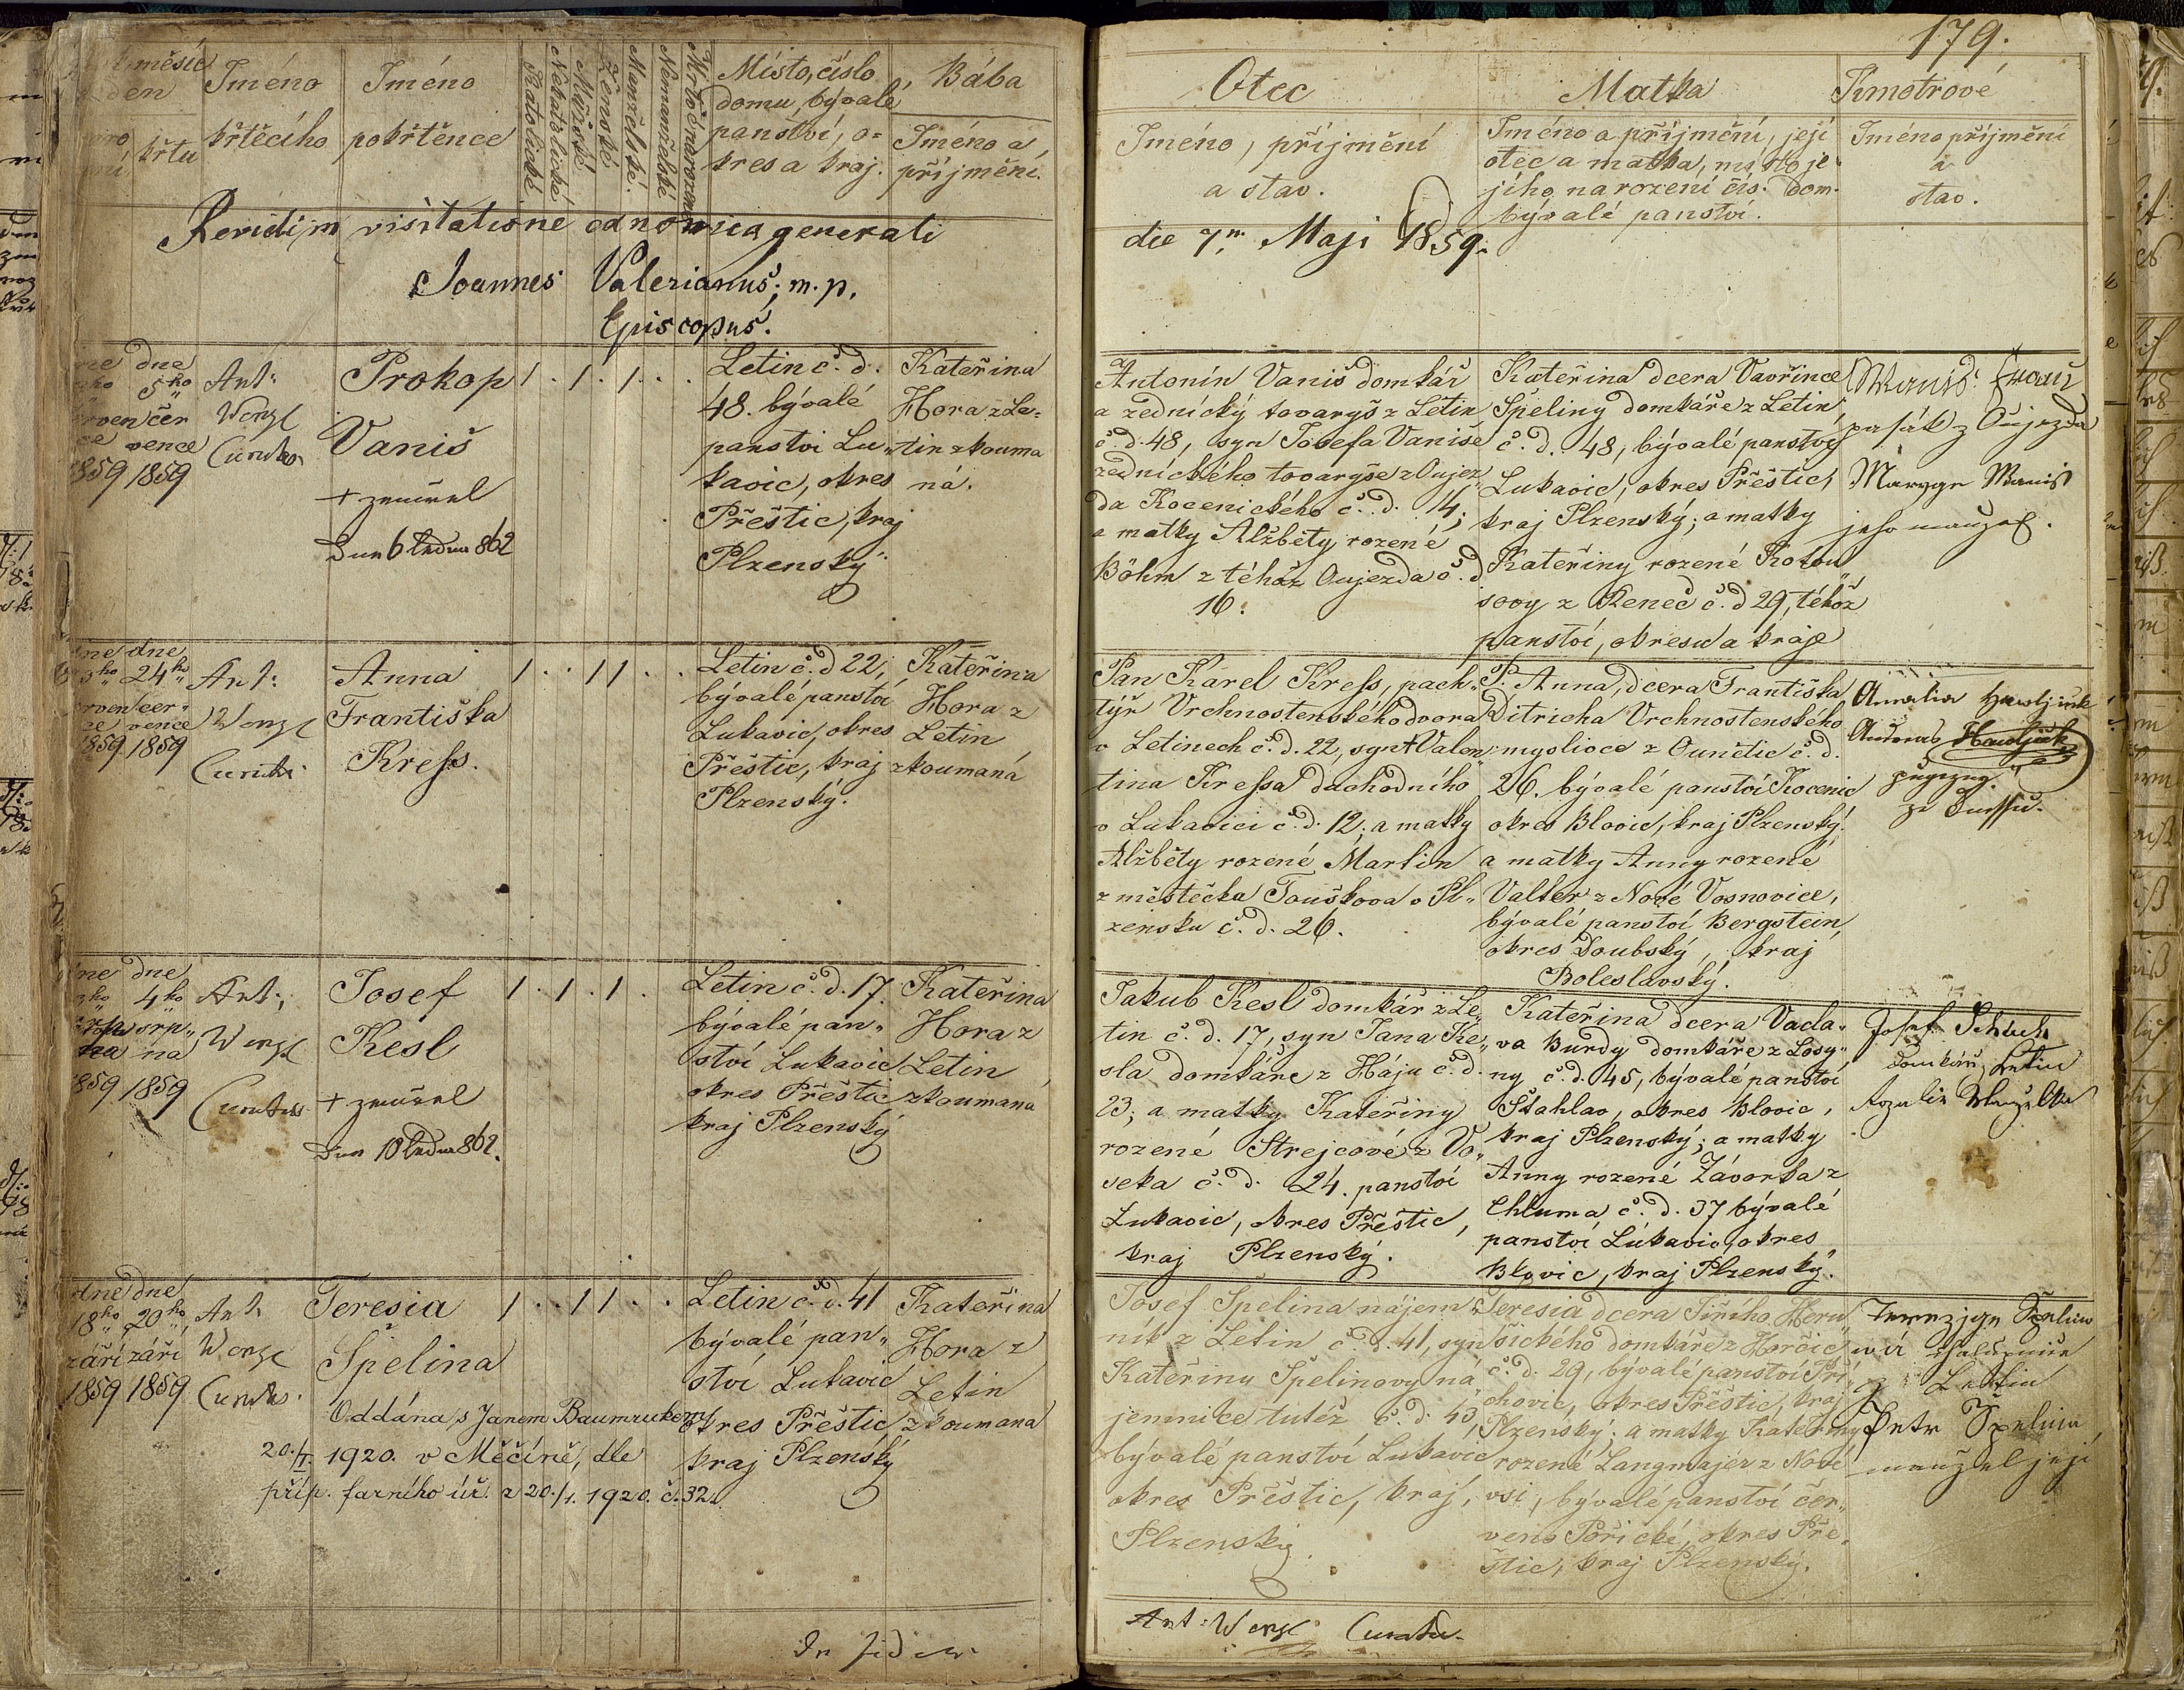 179.
měsíc
den
křtu
Jméno
křtěcího
Jméno
pokřtěnce
Katolické
Nekatolické
Mužské
Ženské
Manželské.
Nemanželské
Mrtvě narozené
Místo, číslo
domu, bývalé
panství, o=
kres a kraj.
Bába
Jméno a
příjmění.
Otec
Jméno, příjmění
a stav.
Matka
Jméno a příjmění, její
otec a matka, místo je-
jího narození čís. dom.
bývalé panství.
Kmotrové
Jméno příjmění
a
stav.
Revidi in visitatione canonica generali
die 7. Maji 1859.
Joannes Valerianus, m. p.
Episcopus.
dne
5ho
čer
vence
1859 1859
Ant:
Wenzl
Curatus
Prokop
Vaniš
+ zemřel
Dne 6 ledna 862
1 . 1 . 1 . .
Letin č. d.
48. bývalé
panství Lu„
kavic, okres
Přeštic, kraj
Plzenský
Kateřina
Hora z Le=
tin zkouma
ná.
Antonín Vaniš domkář
a zednický tovaryš z Letin
č. d. 48, syn Josefa Vaniše
zednického tovaryše z Oujez„
da Kocenického č. d. 14;
a matky Alžběty rozené
Böhm z téhož Oujezda č. d
16.
Kateřina dcera Vavřince
Špeliny domkáře z Letin
č. d. 48, bývalé panství
Lukavic, okres Přeštic,
kraj Plzenský; a matky
Kateřiny rozené Kotou„
sovy z Kenec č. d 29, téhož
panství, okresu a kraje
z Oujezda
Maryye Waniš
jeho manžel.
dne dne
24ho
čer„
vence
1859 1859
Ant:
Wenzl
Curatus
Anna
Františka
Kress.
1 . . 1 1 . .
Letin č. d 22,
bývalé panství
Lukavic, okres
Přeštic, kraj
Plzenský.
Kateřina
Hora z
Letin
zkoumaná
Pan Karel Kress, pach„
týř Vrchnostenského dvora
v Letinech č. d. 22, syn + Valen„
tina Kressa důchodního
v Lukavici č. d. 12; a matky
Alžběty rozené Martin
z městečka Touškova v Pl„
zensku č. d. 26.
P. Anna, dcera Františka
Ditricha Vrchnostenského
myslivce z Ounětic č. d.
26. bývalé panství Kocenic
okres Blovic, kraj Plzenský.
a matky Anny rozené
Valter z Nové Vosnovice,
bývalé panství Bergstein,
okres Doubský, kraj
Boleslavský.
Amalia
Hawljček
dne dne
4ho
srp„
na
1859 1859
Ant:
Wenzl
Curatus
Josef
Kesl
+ zemřel
Dne 10 ledna 862.
1 . 1 . 1 .
Letin č. d. 17.
bývalé pan„
ství Lukavic
okres Přeštic
kraj Plzenský
Kateřina
Hora z
Letin
zkoumaná
Jakub Kesl domkář z Le„
tin č. d. 17, syn Jana Ke„
sla domkáře z Háju č. d.
23; a matky Kateřiny
rozené Strejcové z Vo„
seka č. d. 24. panství
Lukavic, okres Přeštic,
kraj Plzenský.
Kateřina dcera Václa„
va Burdy domkáře z Losy„
ny č. d. 45, bývalé panství
Štahlav, okres Blovic,
kraj Plzenský; a matky
Anny rozené Závorka z
Chluma č. d. 37 bývalé
panství Lukavic, okres
Blovic, kraj Plzenský.
Josef
domkář, Letin
dne dne
18ho 20ho
září září
1859 1859
Ant.
Wenzl
Curatus.
Teresia
Špelina
Oddána s Janem Baumrukem
20./I. 1920. v Měčíně, dle
příp. farního úř. z 20./1. 1920. č. 32.
1 . . 1 1 . .
Letin č. d. 41
bývalé pan„
ství Lukavic
okres Přeštic
kraj Plzenský
Kateřina
Hora z
Letin
zkoumana
Josef Špelina nájem„
ník z Letin č. d. 41, syn
Kateřiny Špelinovy ná„
jemnice tutéž č. d. 43,
bývalé panství Lukavic
okres Přeštic, kraj,
Plzenský.
Teresia dcera Jiřího Heru„
šického domkáře z Horčic
č. d. 29, bývalé panství Pří„
chovic, okres Přeštic, kraj
Plzenský; a matky Kateřiny
rozené Langmajer z Nové
vsi, bývalé panství čer„
veno Pořické, okres Pře„
štic, kraj Plzenský.
z Letin
Petr Špelina
manžel její
In fidem
Ant: Wenzl Curatus.